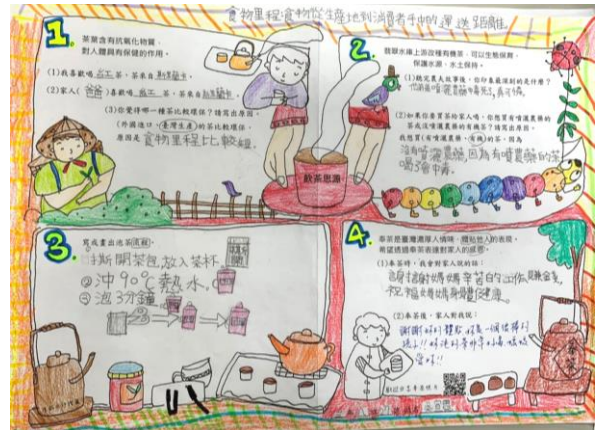 食物里程:食物從生產地到消費者手中的運送距離。
1.
茶葉含有抗氧化物質,
對人體具有保健的作用。
(1)我喜歡喝紅茶,茶來自斯里蘭卡。
(2)家人(爸爸)喜歡喝紅茶,茶來自斯里蘭卡。
(3)你覺得哪一種茶比較環保?請寫出原因。
(外國進口、臺灣生產)的茶比較環保,
原因是食物里程比較短。
2.
翡翠水庫上游改種有機茶,可以生態保育、
保護水源、水土保持。
(1)聽完農夫故事後,你印象最深刻的是什麼?
(2)如果你要買茶給家人喝,你想買有噴灑農藥的
茶或沒噴灑農藥的有機茶?請寫出原因。
我想買(有噴灑農藥、有機)的茶,因為
沒有噴灑農藥,因為有噴農藥的茶
喝了會中毒。
飲茶思源
3.
寫或畫出泡茶流程
①撕開茶包放入茶杯
②沖90℃熱水。
③泡3分鐘
4.
奉茶是臺灣濃厚人情味、體貼他人的表現,
希望透過奉茶表達對家人的感恩。
(1)奉茶時,我會對家人說的話:
謝謝媽媽辛苦的工作賺錢,
祝福媽媽身體健康。
(2)奉茶後,家人對我說: